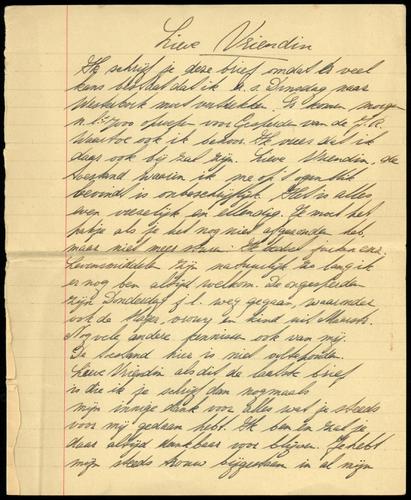 Lieve Vriendin
Ik schrijf je deze brief omdat er veel
kans bestaat dat ik a.s. Dinsdag naar
Westerbork moet vertrekken. Er komen morgen
n.l. ± 700 oproepen voor Gesperden van de J.R.
Waartoe ook ik behoor. Ik vrees dat ik
daar ook bij zal zijn. Lieve Vriendin, de
toestand waarin ik me op 't ogenblik
bevindt is onbeschrijflijk. Het is alles
even vreselijk en ellendig. Je moet het
pakje als je het nog niet afgezonden hebt,
maar niet meer sturen. Ik bedoel
Levensmiddelen zijn natuurlijk zo lang ik
er nog ben altijd welkom. De ongesperden
zijn Donderdag j.l. weg gegaan, waaronder
ook de vrouw en kind uit
Nog vele andere kennissen ook van mij.
De toestand hier is niet uittehouden.
Lieve Vriendin als dit de laatste brief
is die ik je schrijf dan nogmaals
mijn innige dank voor alles wat je steeds
voor mij gedaan hebt. Ik ben en zal je
daar altijd dankbaar voor blijven. Je hebt
mijn steeds trouw bijgestaan in al mijn